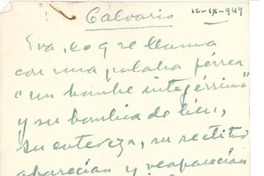 Calvario
Era, lo q se llama
con una palabra férrea
"un hombre integérrimo"
y su hombría de bien,
su entereza, su rectitud
aparecían y reaparecían